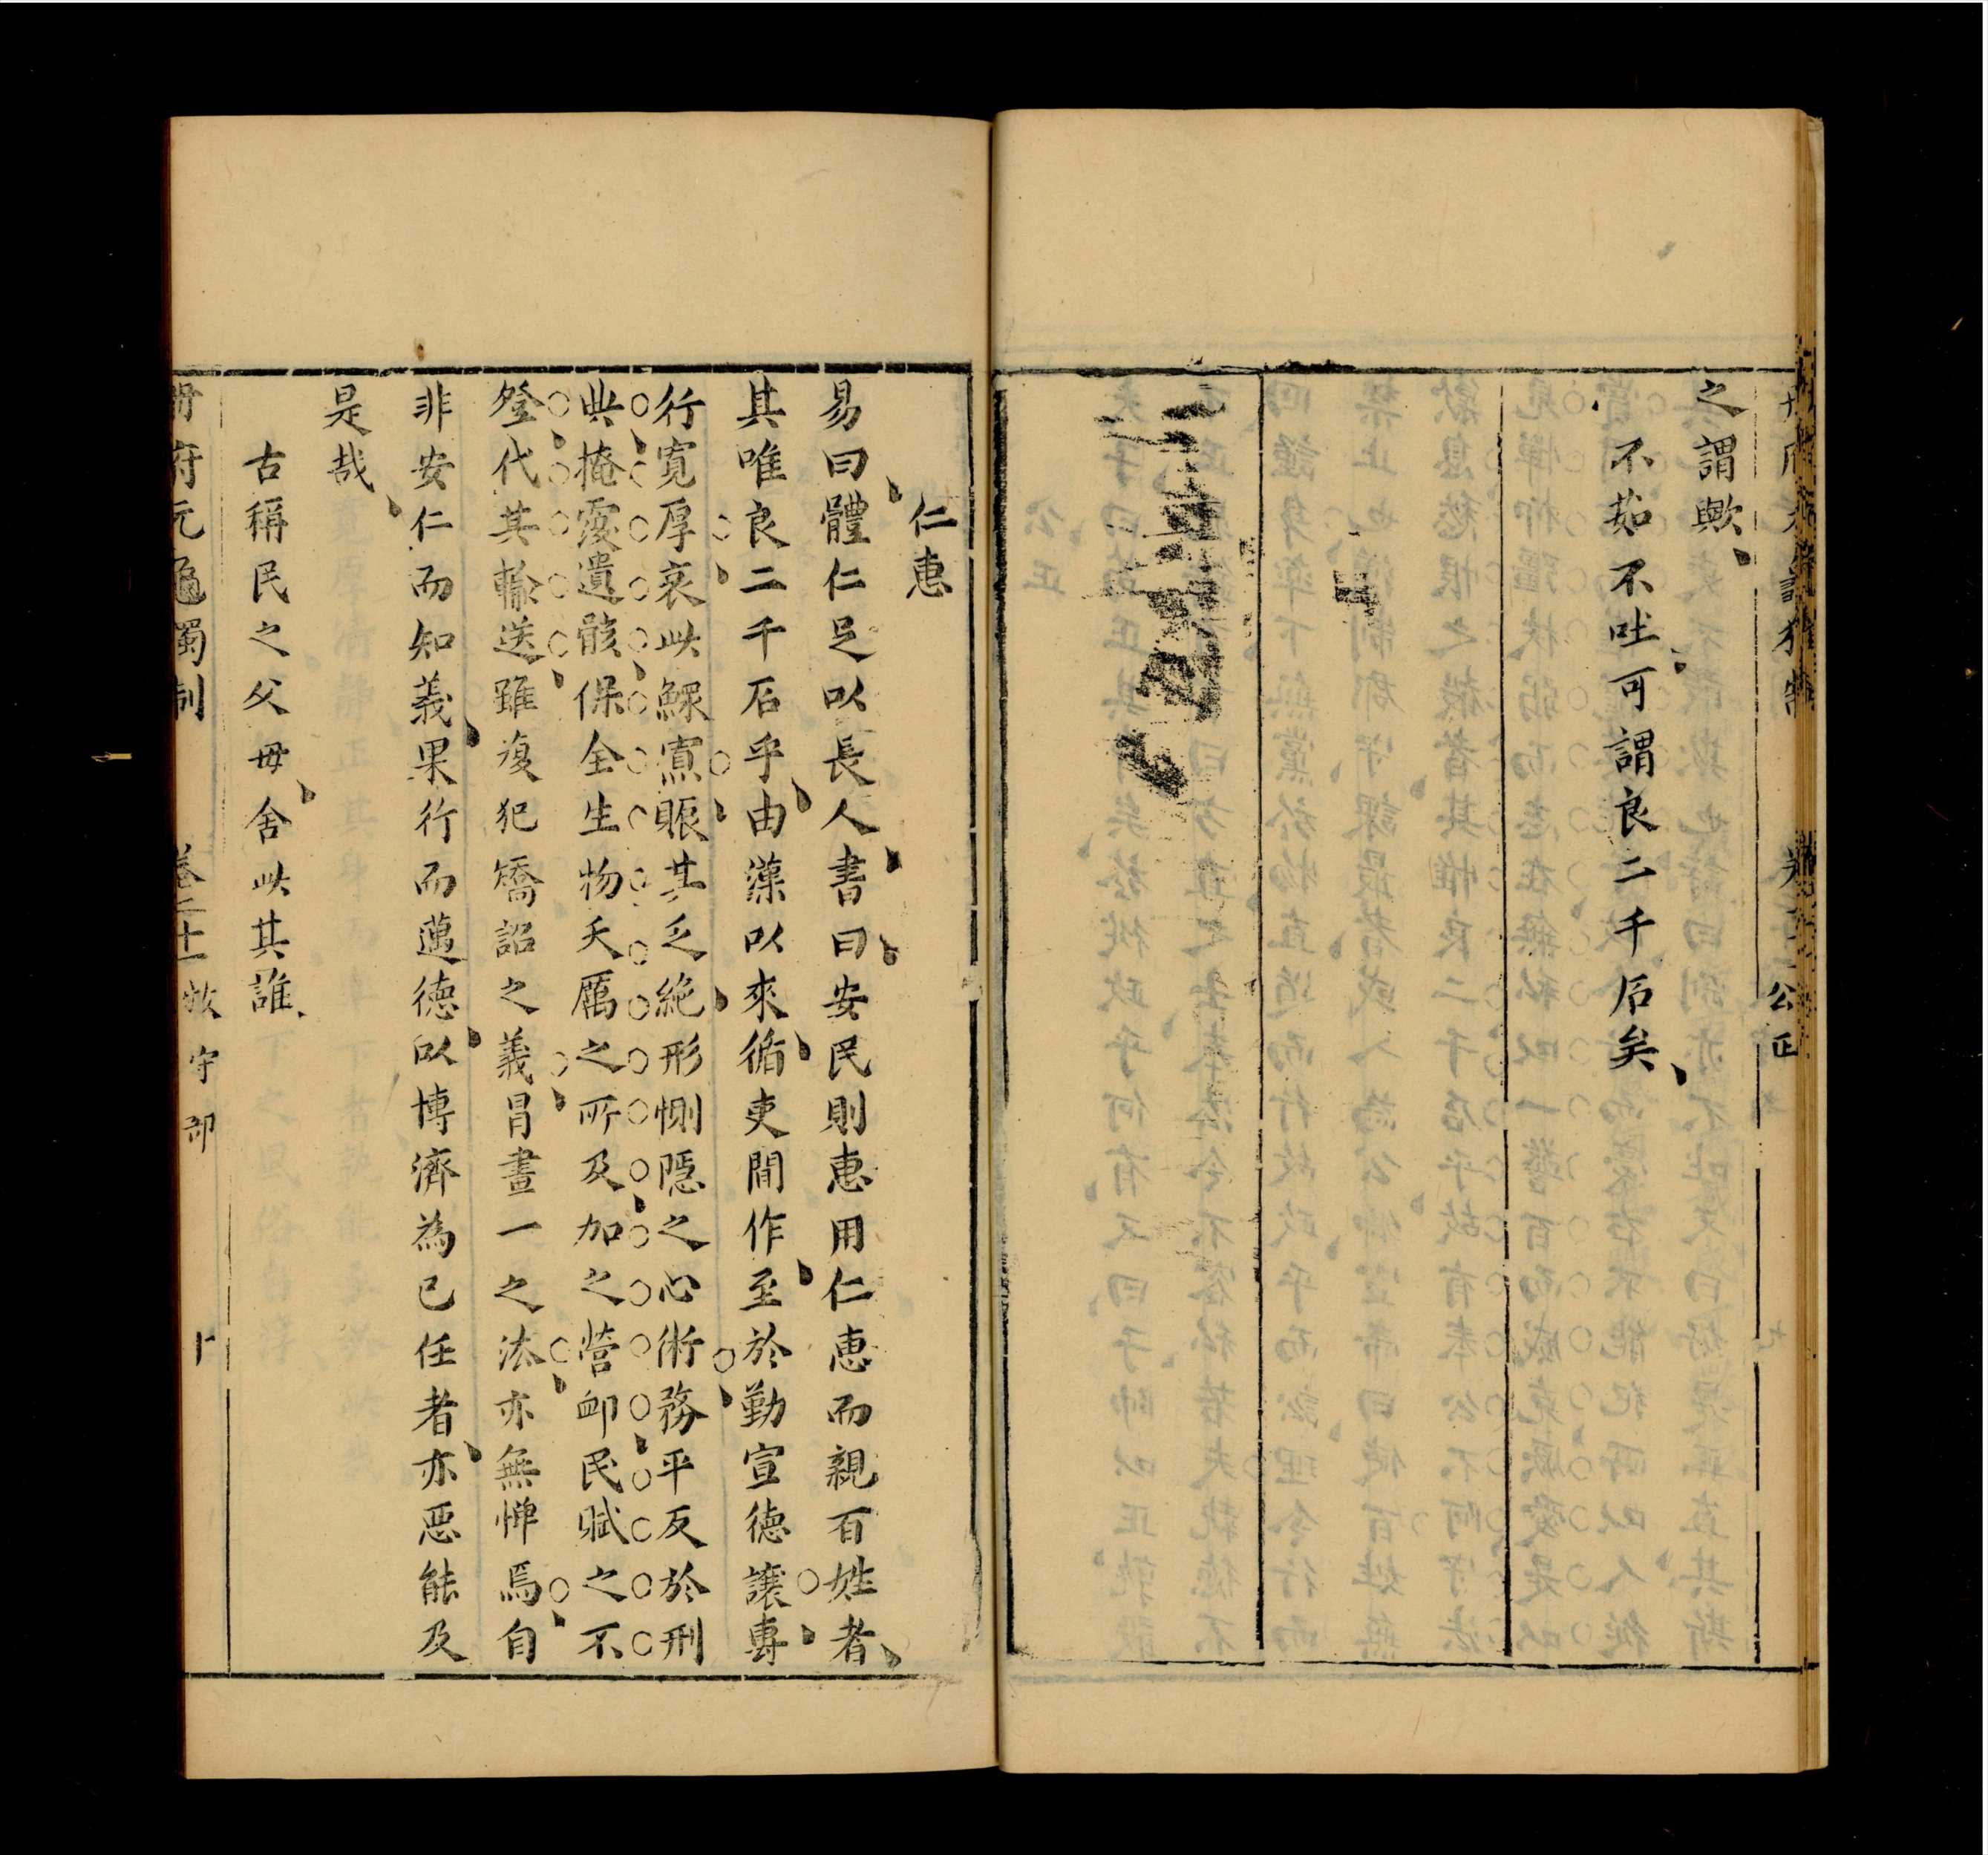 之謂歟
不茹不吐可謂良二千石矣
公正
仁惠
易曰體仁足以長人書曰安民則惠用仁惠而親百姓者
其唯良二千石乎由漢以來循吏間作至於勤宣德讓專
行寬厚哀此鰥寡賑其乏絶形惻隱之心術務平反於刑
典掩覆遺骸保全生物夭厲之所及加之營卹民賦之不
登代其輸送雖復犯矯詔之義冒畫一之法亦無憚焉自
非安仁而知義果行而邁德以博濟為己任者亦惡能及
是哉
古稱民之父毋舍此其誰
府元龜獨制 卷二十一 牧守部 十